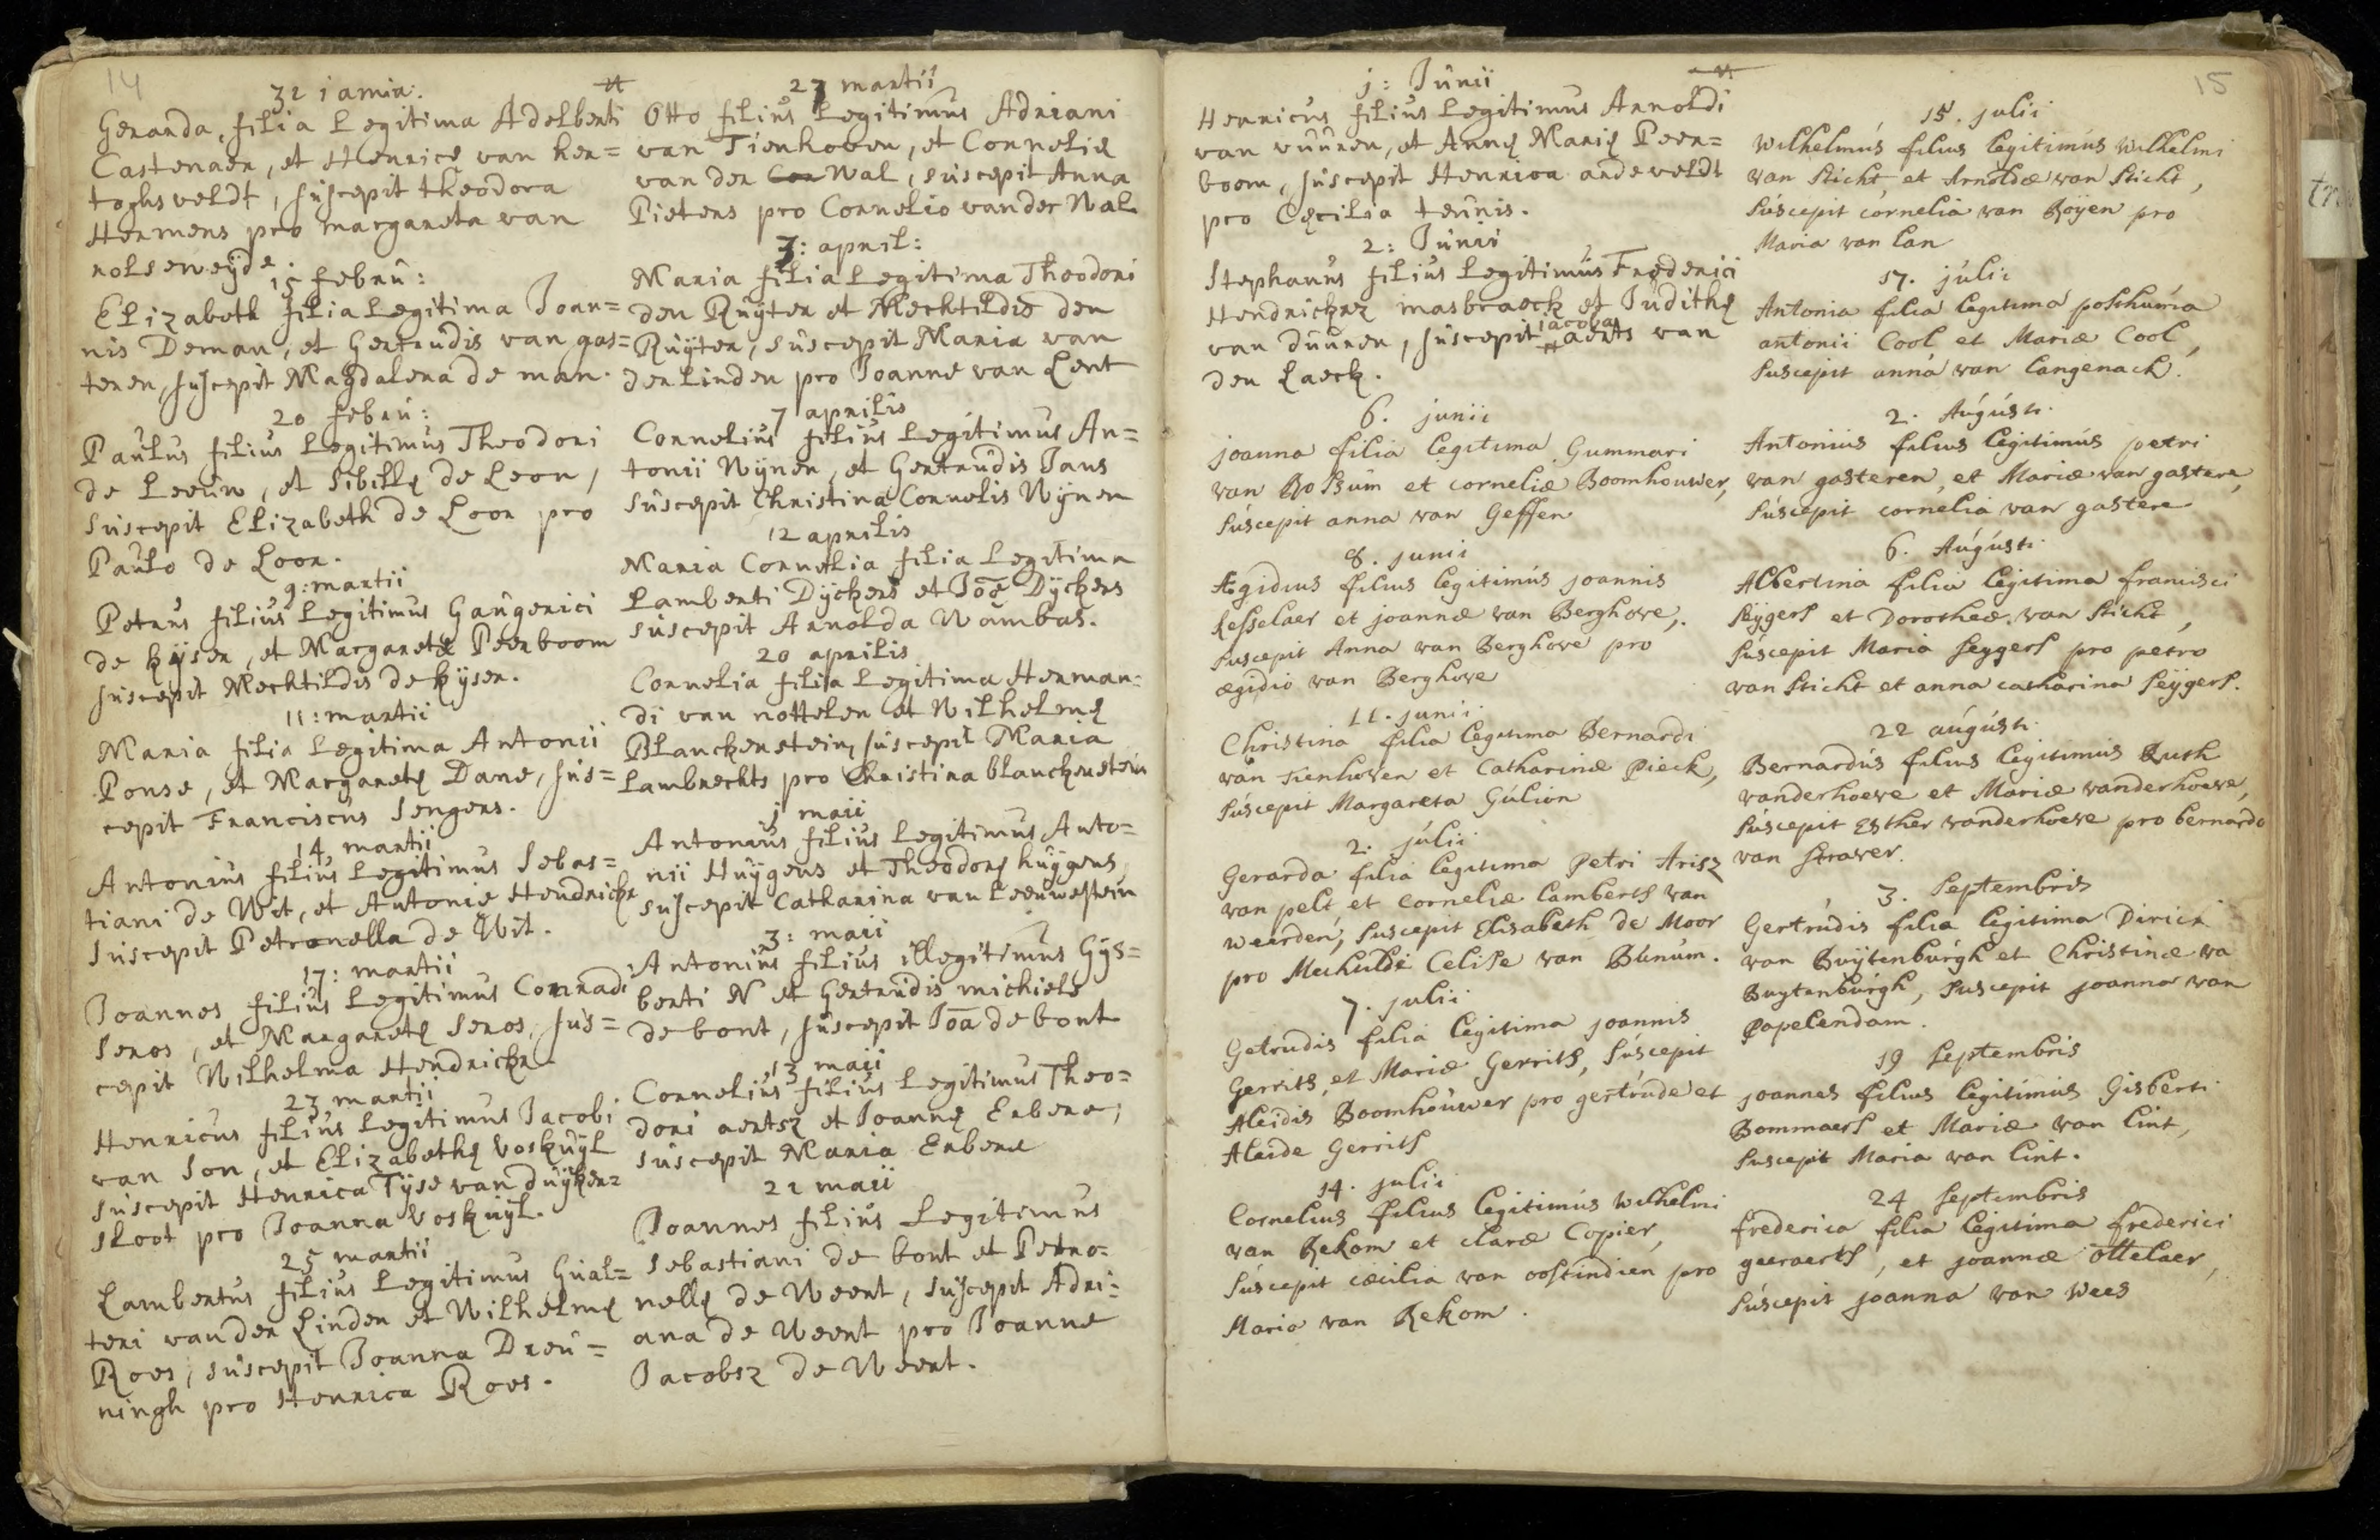 14
31 iamia:
Gerarda, filia Legitima Adelberti
Castenaer, et Henricę van her=
toghsveldt, suscepit theodora
Hermens pro margareta van
rolseweÿde.
15 febru:
Elizabeth filia Legitima Joan=
nis Deman, et Gertrudis van gas=
teren, suscepit Magdalena de man.
20 febru:
Paulus filius Legitimus Theodori
de Leeuw, et Sibillę de Leon,
suscepit Elizabeth de Loon pro
Paulo de Loon.
9: martii
Petrus filius Legitimus Gaugerici
de Kÿser, et Margaretę Peerboom
suscepit Mechtildis de kÿser.
11: martii
Maria filia Legitima Antonii
Ponse, et Margaretę Dane, sus=
cepit Franciscus Sengers.
14 martii
Antonius filius Legitimus Sebas=
tiani de Wit, et Antonię Hendrickx
suscepit Petronella de Wit.
17: martii
Joannes filius Legitimus Conradi
Seros, et Margaretę Seros, sus=
cepit Wilhelma Hendrickx
23 martii
Henricus filius Legitimus Jacobi
van Son, et Elizabethę Voskuÿl
suscepit Henrica Tÿse van duÿker=
sloot pro Joanna Voskuÿl.
25 martii
Lambertus filius Legitimus Gual=
teri vander Linden et Wilhelmę
Roes, suscepit Joanna Dreu=
ningh pro Henrica Roes.
27 martii
Otto filius Legitimus Adriani
van Tienhoven, et Cornelię
van der Wal, suscepit Anna
Pieters pro Cornelio vander Wal.
3: april:
Maria filia Legitima Theodori
den Ruÿter et Mechtildis den
Ruÿter, suscepit Maria van
der Linden pro Joanne van Lent
7 aprilis
Cornelius filius Legitimus An=
tonii Wÿnen, et Gertrudis Jans
suscepit Christina Cornelis Wÿnen
12 aprilis
Maria Cornelia filia Legitima
Lamberti Dÿckers et Joę Dÿckers
suscepit Arnolda Wambas.
20 aprilis
Cornelia filia Legitima Herman=
di van nottelen et Wilhelmę
Blanckenstein, suscepit Maria
Lambrechts pro Christina blanckenstein
1 maii
Antonius filius Legitimus Anto=
nii Huÿgens et Theodorę huÿgens
suscepit Catharina van Leeuwestein
3: maii
Antonius filius illegitimus Gÿs=
berti N et Gertrudis michiels
de bont, suscepit Joa de bont
13 maii
Cornelius filius Legitimus Theo=
dori aertsz et Joannę Erbere,
suscepit Maria Erbere
21 maii
Joannes filius Legitimus
Sebastiani de bont et Petro=
nellę de Weert, suscepit Adri=
ana de Weert pro Joanne
Jacobsz de Weert.
1: Junii
Henricus filius Legitimus Arnoldi
van vuuren, et Annę Marię Peer=
boom, suscepit Henrica andeveldt
pro Cęcilia teunis.
2: Junii
Stephanus filius Legitimus Frederici
Hendrickxz masbraeck et Judithę
van duuren, suscepit Jacoba aerts van
den Laeck.
6. junii
joanna filia legitima Gummari
van Bossum et corneliæ Boomhouwer,
suscepit anna van Geffen
8. junii
Ægidius filius legitimus joannis
Kesselaer et joannæ van Berghove,
suscepit Anna van Berghove pro
ægidio van Berghove
11. junii
Christina filia legitima Bernardi
van tienhoven et Catharinæ Pieck,
suscepit Margareta Gulion
2. julii
Gerarda filia legitima Petri Arisz
van pelt et Corneliæ Lamberts van
weerden, suscepit Elisabeth de Moor
pro Mechulde Celise van Bunum.
7. julii
Getrudis filia legitima joannis
Gerrits, et Mariæ Gerrits, suscepit
Aleidis Boomhouwer pro gertrude et
Aleide Gerrits
14. julii
Cornelius filius legitimus wilhelmi
van Bekom et claræ Copier,
suscepit cæcilia van oostindien pro
Maria van Bekom.
15
15. julii
Wilhelmus filius legitimus wilhelmi
van sticht, et Arnoldæ van sticht,
suscepit cornelia van Royen pro
Maria van lan
17. julii
Antonia filia legitima posthuma
antonii Cool et Mariæ Cool,
suscepit anna van langenack.
2. Augusti
Antonius filius legitimus petri
van gasteren, et Mariæ van gastere,
suscepit cornelia van gastere
6. Augusti
Albertina filia legitima francisci
seÿgers et Dorotheæ van sticht,
suscepit Maria seygers pro petro
van sticht et anna catharina seÿgers.
22 augusti
Bernardus filius legitimus Ruth
vanderhoeve et Mariæ vanderhoeve,
suscepit Esther vanderhoeve pro bernardo
van straver.
3. septembris
Gertrudis filia legitima Dirici
van Buÿtenburgh et Christinæ va
Buytenburgh, suscepit joanna van
Papelendam.
19 septembris
joannes filius legitimus Gisberti
Bommaers et Mariæ van lint,
suscepit Maria van lint.
24 septembris
frederica filia legitima frederici
geeraerts, et joannæ ottelaer,
suscepit joanna van wees